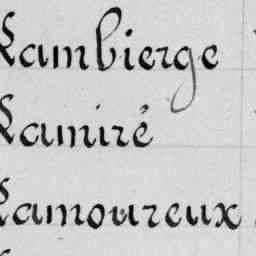 Lambierge
Lamiré
Lamoureux